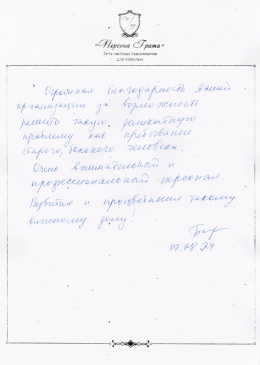 «Перспал Гранд»
Сеть частных пансионатов
для пожилых
Огромная благодарность вашей
организации за возможность
решить такую деликатную
проблему как пребывание
старого, больного человека.
Очень внимательный и
профессиональный персонал.
Развития и процветания такому
важному делу!